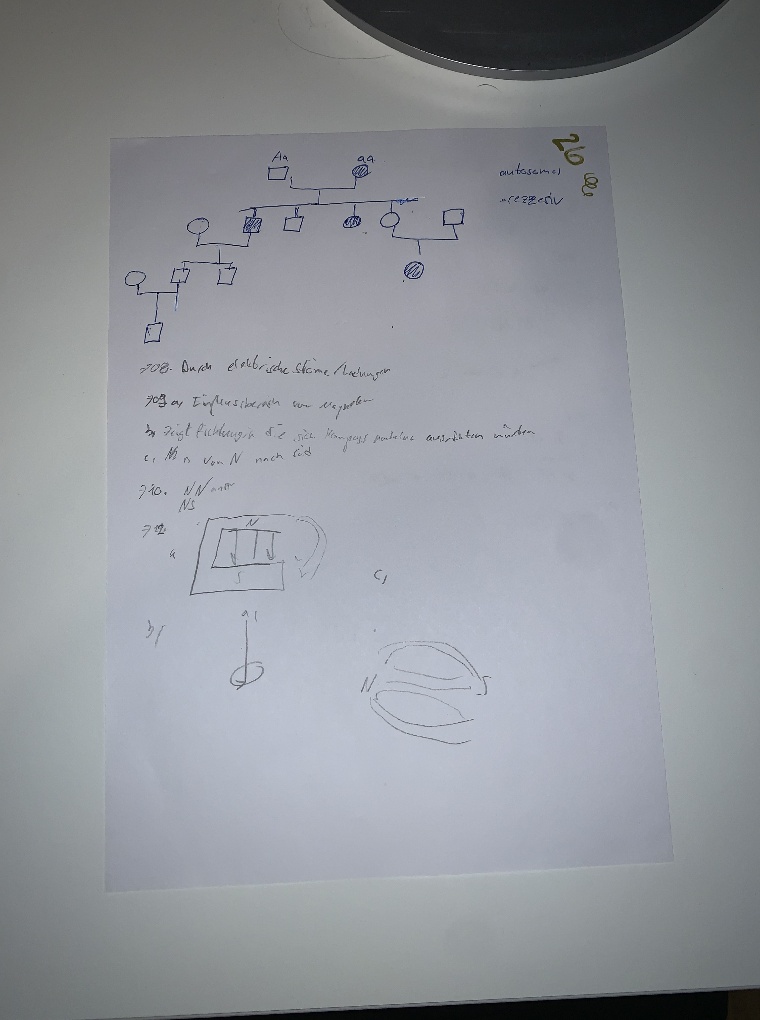 26
Aa aa
autosomal
rezessiv
708. Durch elektrische Ströme/Ladungen
709 a, Einflussbereich von Magneten
b, zeigt Richtung in die sich Kompass ausrichten würden
c, von N nach Süd
710. NN
NS
a
N
S
c,
b,
N S